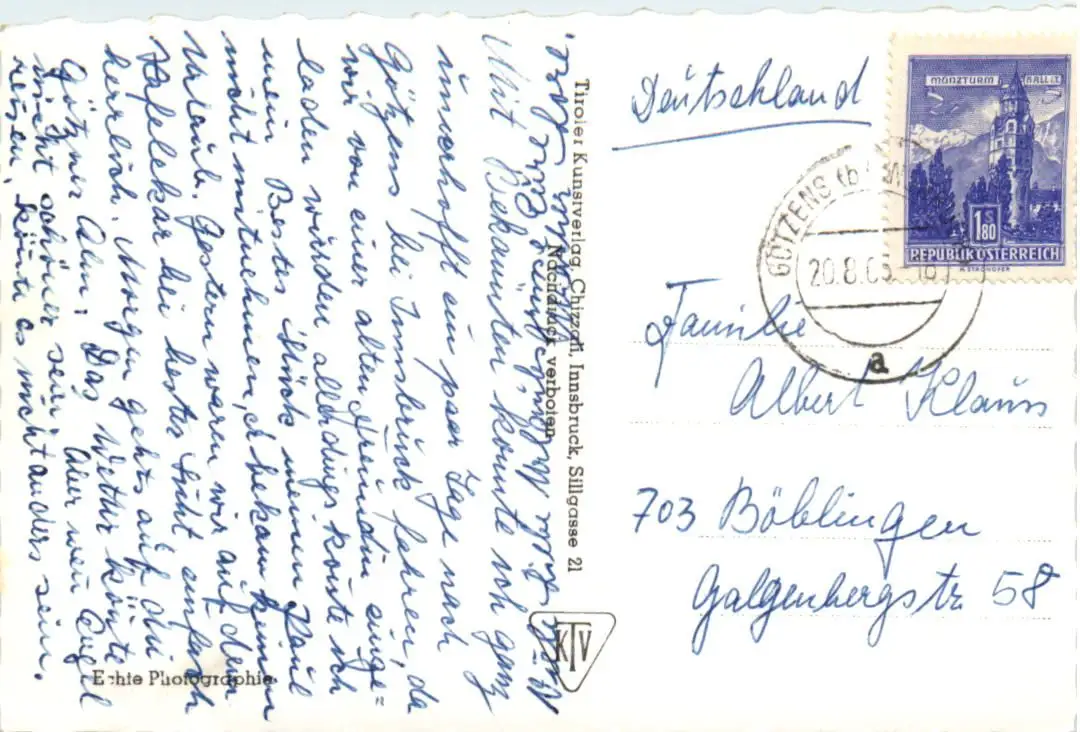 Mit Bekannten konnte ich ganz
unverhofft ein paar Tage nach
Götzens bei Innsbruck fahren, da
wir von einer alten Freundin einge=
laden wurden allerdings konnte ich
mein Bestes Stück meinen Paul
nicht mitnehmen, er bekam keinen
Urlaub. Gestern waren wir auf dem
Hafelekar bei bester Sicht einfach
herrlich. Morgen gehts auf die
Götzner Alm. Das Wetter könnte
nicht schöner sein. Aber wen Engel
reisen, könnte es nicht anders sein.
Tiroler Kunstverlag Chizzali, Innsbruck, Sillgasse 21
Nachdruck verboten
KTV
Echte Photographie
Deutschland
MÜNZTURM HALL i.T.
S
1.80
REPUBLIK ÖSTERREICH
H. STROHOFER
GÖTZENS (b.
20.8.65
a
Familie
Albert Klaus
703 Böblingen
Galgenbergstr 58